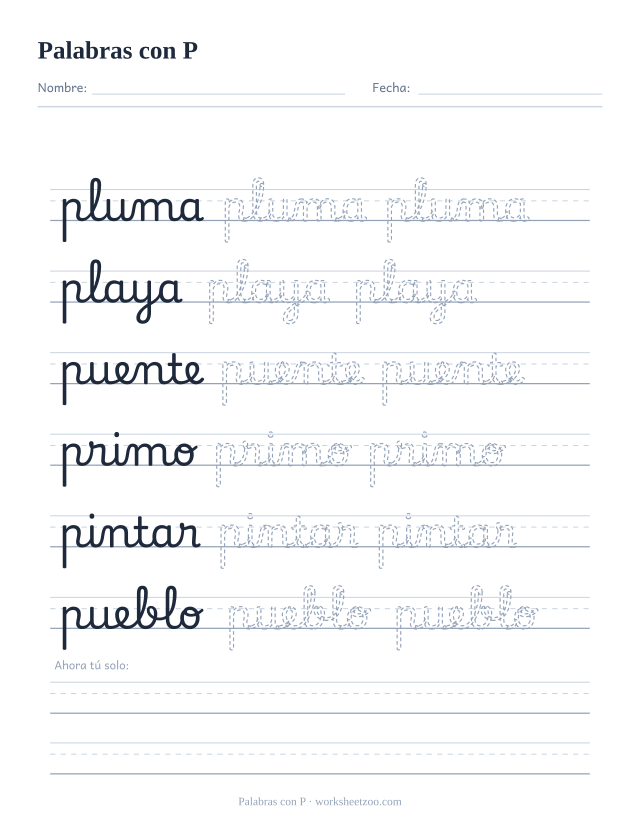 Palabras con P
Nombre: Fecha:
pluma pluma pluma
playa playa playa
puente puente puente
primo primo primo
pintar pintar pintar
pueblo pueblo pueblo
Ahora tú solo:
Palabras con P · worksheetzoo.com